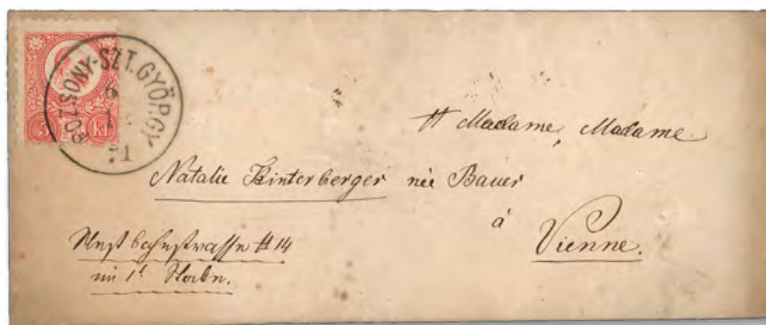 POZSONY-SZT.GYÖRGY
6
71
KR
A Madame, Madame
Natalie Hinterberger née Bauer
à
Vienne.
Westbahnstrasse # 14
im 1t